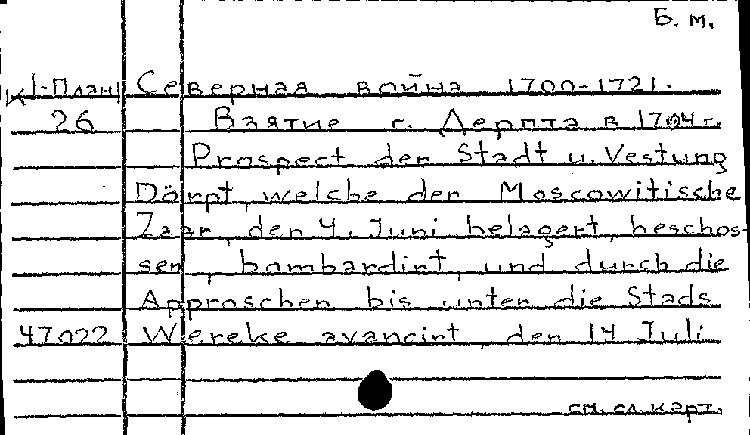 Б. м.
К1-План Северная война 1700-1721.
26 Взятие г. Дерпта в 1704 г.
Prospect der Stadt u. Vestung
Dörpt, welche der Moscowitische
Zaar, den 4. Juni belagert, beschos-
sen, bombardirt, und durch die
Approschen bis unter die Stads
47022 Wereke avancirt, den 14 Juli
см. сл. карт.